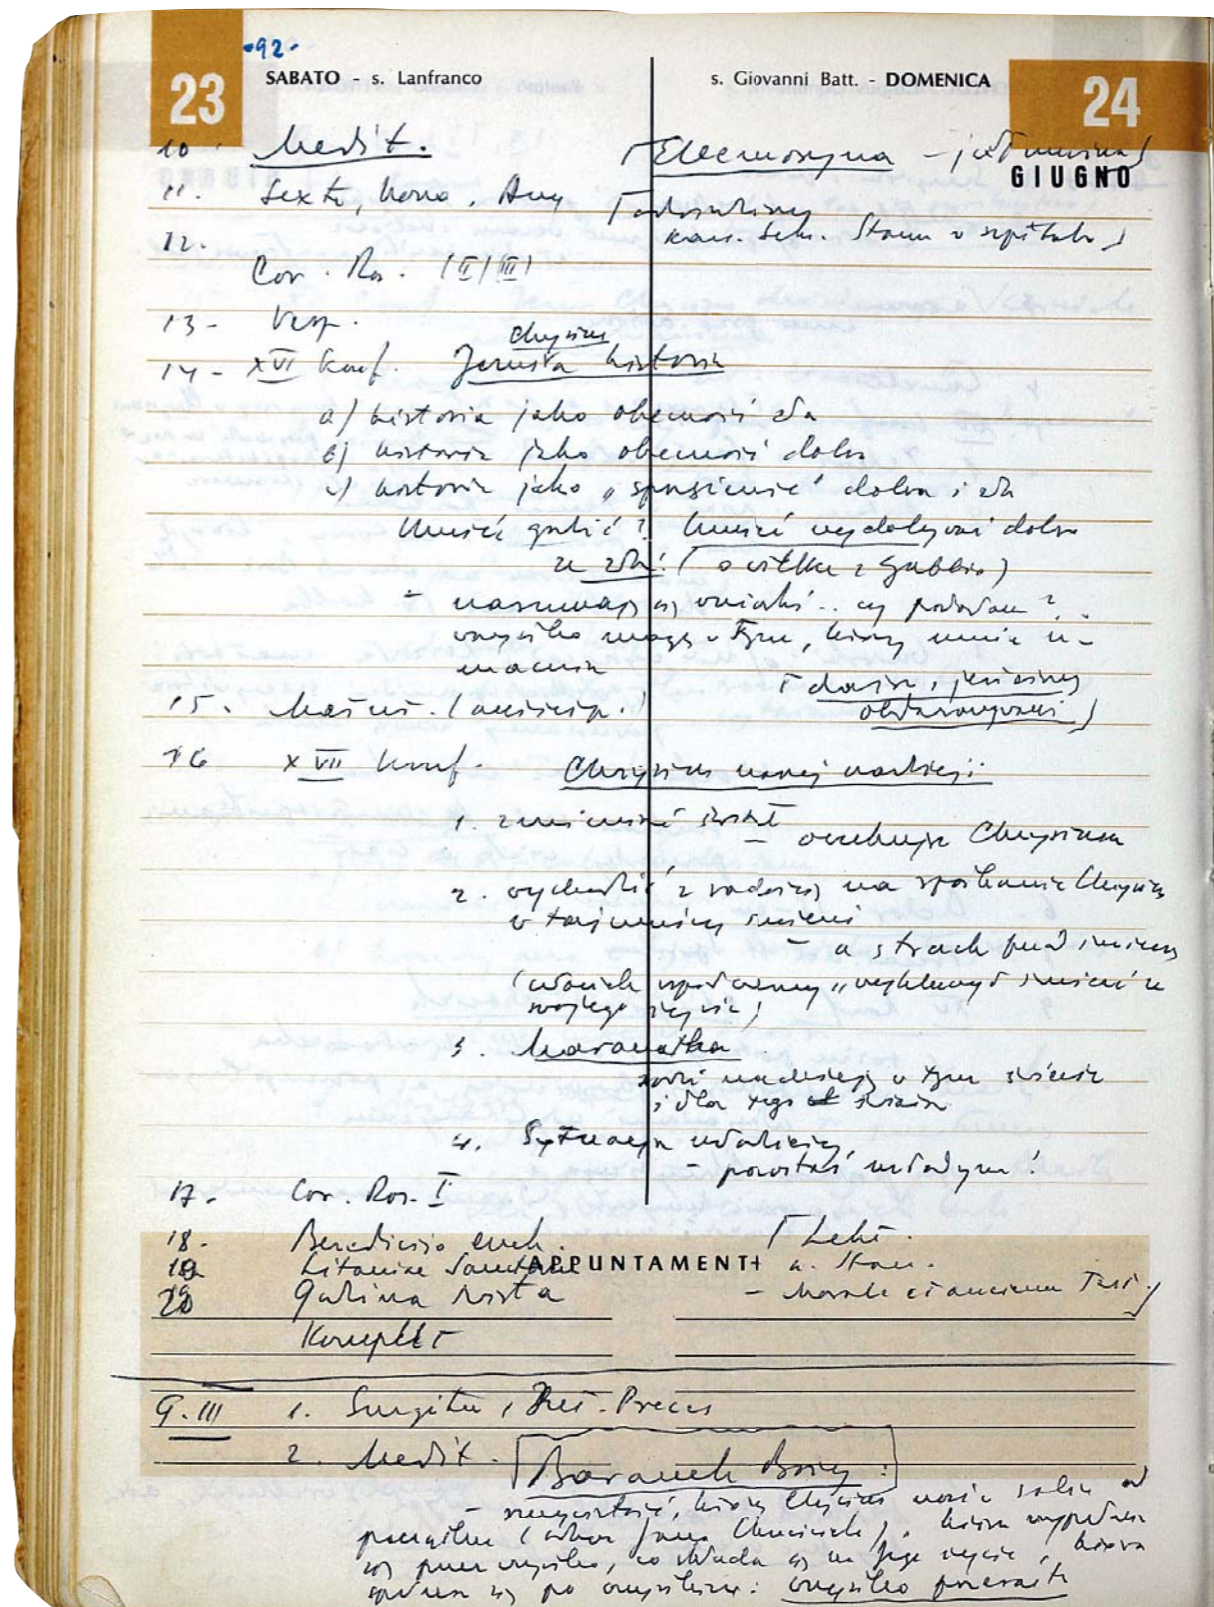 ·92·
23 SABATO - s. Lanfranco
s. Giovanni Batt. - DOMENICA 24
GIUGNO
10. Medit.
[Eleemosyna – jałmużna]
11. Sexta, Nona, Ang.
[odwiedziny
kard. Stan. w szpitalu]
12.
Cor. Ros. (II/III)
13 - Vesp.
14 - XVI Konf. Jezus Chrystus historia
a) historia jako obecność zła
b) historia jako obecność dobra
c) historia jako „ dobra i zła
Umieć gubić? Umieć wydobywać dobro
ze zła! (o wilku z Gubbio)
- nasuwają się wnioski .. czy podołam?
wszystko mogę w Tym, który mnie u-
macnia
[dając, jesteśmy
obdarowywani]
15 - Matut. (anticip.)
16 XVII Konf. Chrystus naszej nadziei:
1. zmienność świata
– oczekuje Chrystusa
2. wychodzić z radością na spotkanie Chrystusa
w tajemnicy śmierci
– a strach przed śmiercią
(człowiek współczesny „wykluczył śmierć ze
swojego życia)
3. Maranatha
nadzieję w tym świecie
i dla tego świata
4. Sytuacja młodzieży
– pozostać młodym!
17 - Cor. Ros. I
18 - Benedictio euch.
[Lekt.
Litaniae Sanctorum
APPUNTAMENTI
a. Stan.
20 Godzina święta
– Morale
Komplet
9.III 1. Surgite, Preces
2. Medit. [Baranek Boży:]
– rzeczywistość, którą Chrystus nosi w sobie od
początku (słowa Jana Chrzciciela), która wypowiada
się przez wszystko, co składa się na Jego życie, która
się po wszystkie: wszystko